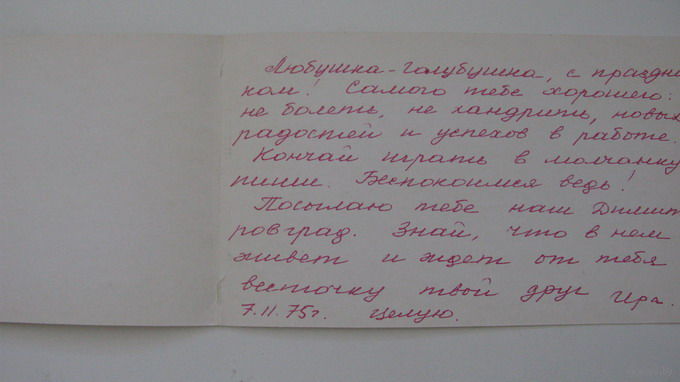 Любушка-голубушка, с праздни
ком! Самого тебе хорошего:
не болеть, не хандрить, новых
радостей и успехов в работе.
Кончай играть в молчанку
пиши. Беспокоимся ведь!
Посылаю тебе наш Димит
ровград. Знай, что в нем
живет и ждет от тебя
весточку твой друг Ира.
7.11.75г. Целую.